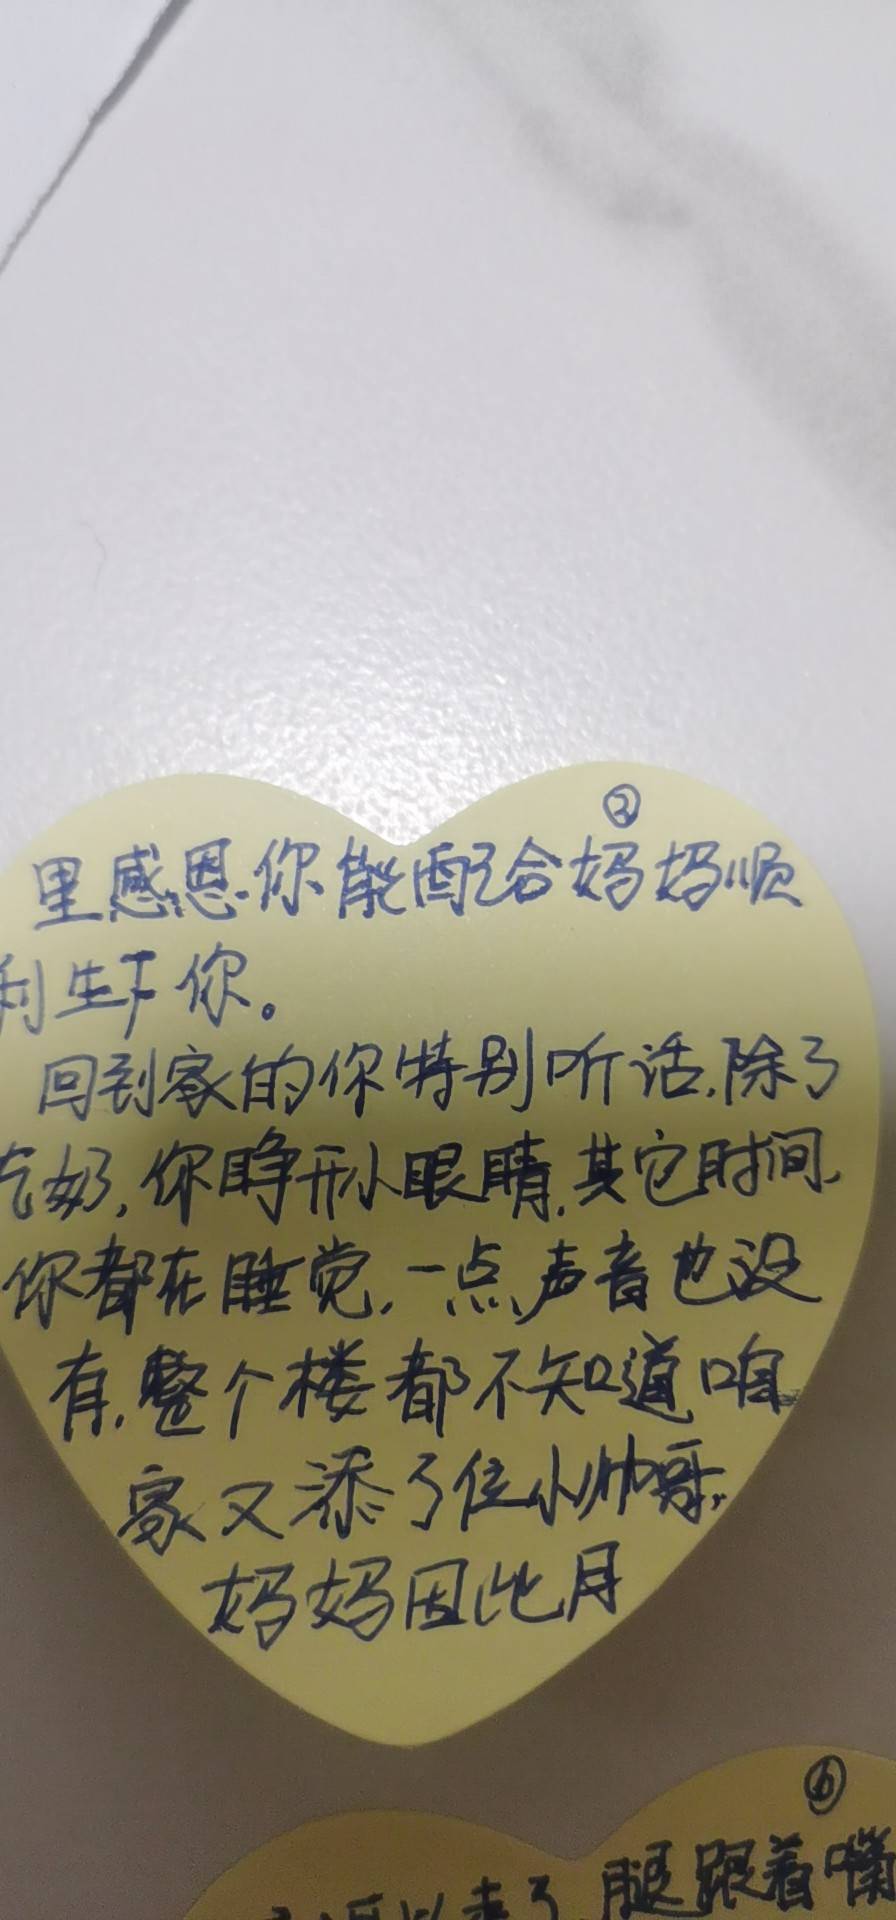 ②
里感恩.你能配合妈妈顺
利生下你。
回到家的你特别听话,除了
吃奶,你睁开小眼睛,其它时间,
你都在睡觉,一点声音也没
有,整个楼都不知道咱
家又添了位小帅哥,
妈妈因此月
⑥
了,腿跟着嘴